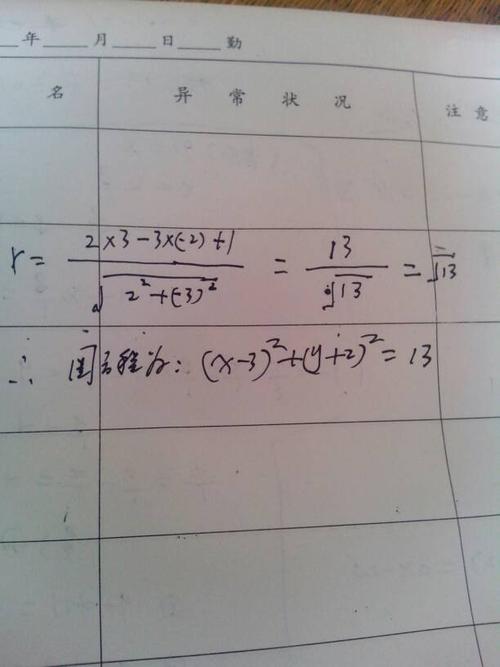 年 月 日 勤
名 异常状况 注意
r = (2×3-3×(-2)+1)/√(2²+(-3)²) = 13/√13 = √13
∴ 圆方程为: (x-3)²+(y+2)²=13